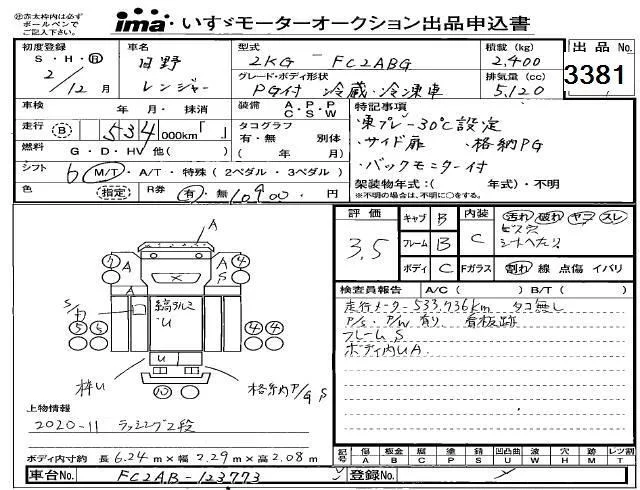 ㊟赤太枠内は必ず
ボールペンで
ご記入下さい。
ima・いすゞモーターオークション出品申込書
初度登録 車名 型式 積載(kg) 出品No.
S・H・Ⓡ 日野 2KG - FC2ABG 2,400
2/12月 レンジャー グレード・ボディ形状 排気量(cc) 3381
PG付 冷蔵・冷凍車 5,120
車検 年 月・抹消 装備 A・P・P C・S・W 特記事項
走行 Ⓑ 534 000km「 」 タコグラフ 有・無 別体 ・東プレ -30℃設定
燃料 G・D・HV/他( ) ( 年 月) ・サイド扉 ・格納PG
シフト 6 M/T・A/T・特殊(2ペダル・3ペダル) ・バックモニター付
色 指定 R券 有・無 10900 円 架装物年式:( 年式)・不明
※不明の場合は、不明に○をする。
評価 キャブ B 内装 汚れ 破れ ヤコ スレ
3.5 フレーム B C ビス穴 シートヘタリ
ボディ C Fガラス 割れ 線 点傷 イバリ
検査員報告 A/C( ) B/T( )
走行メーター533,736km タコ無し
P/S・P/W有り 看板跡
フレームS
ボディ内UA.
A
A A A S
A A
S/カ 縞アルミ U
⑤⑤ ④④
U
枠U 格納P/G S
上物情報
2020-11 ラッシング2段
ボディ内寸約 長6.24m×幅2.29m×高2.08m
記号 傷A 板金B 腐C 塗P 錆S 凹凸曲U 波W 穴H 跡M 切T
車台No. FC2AB-123773 登録No.